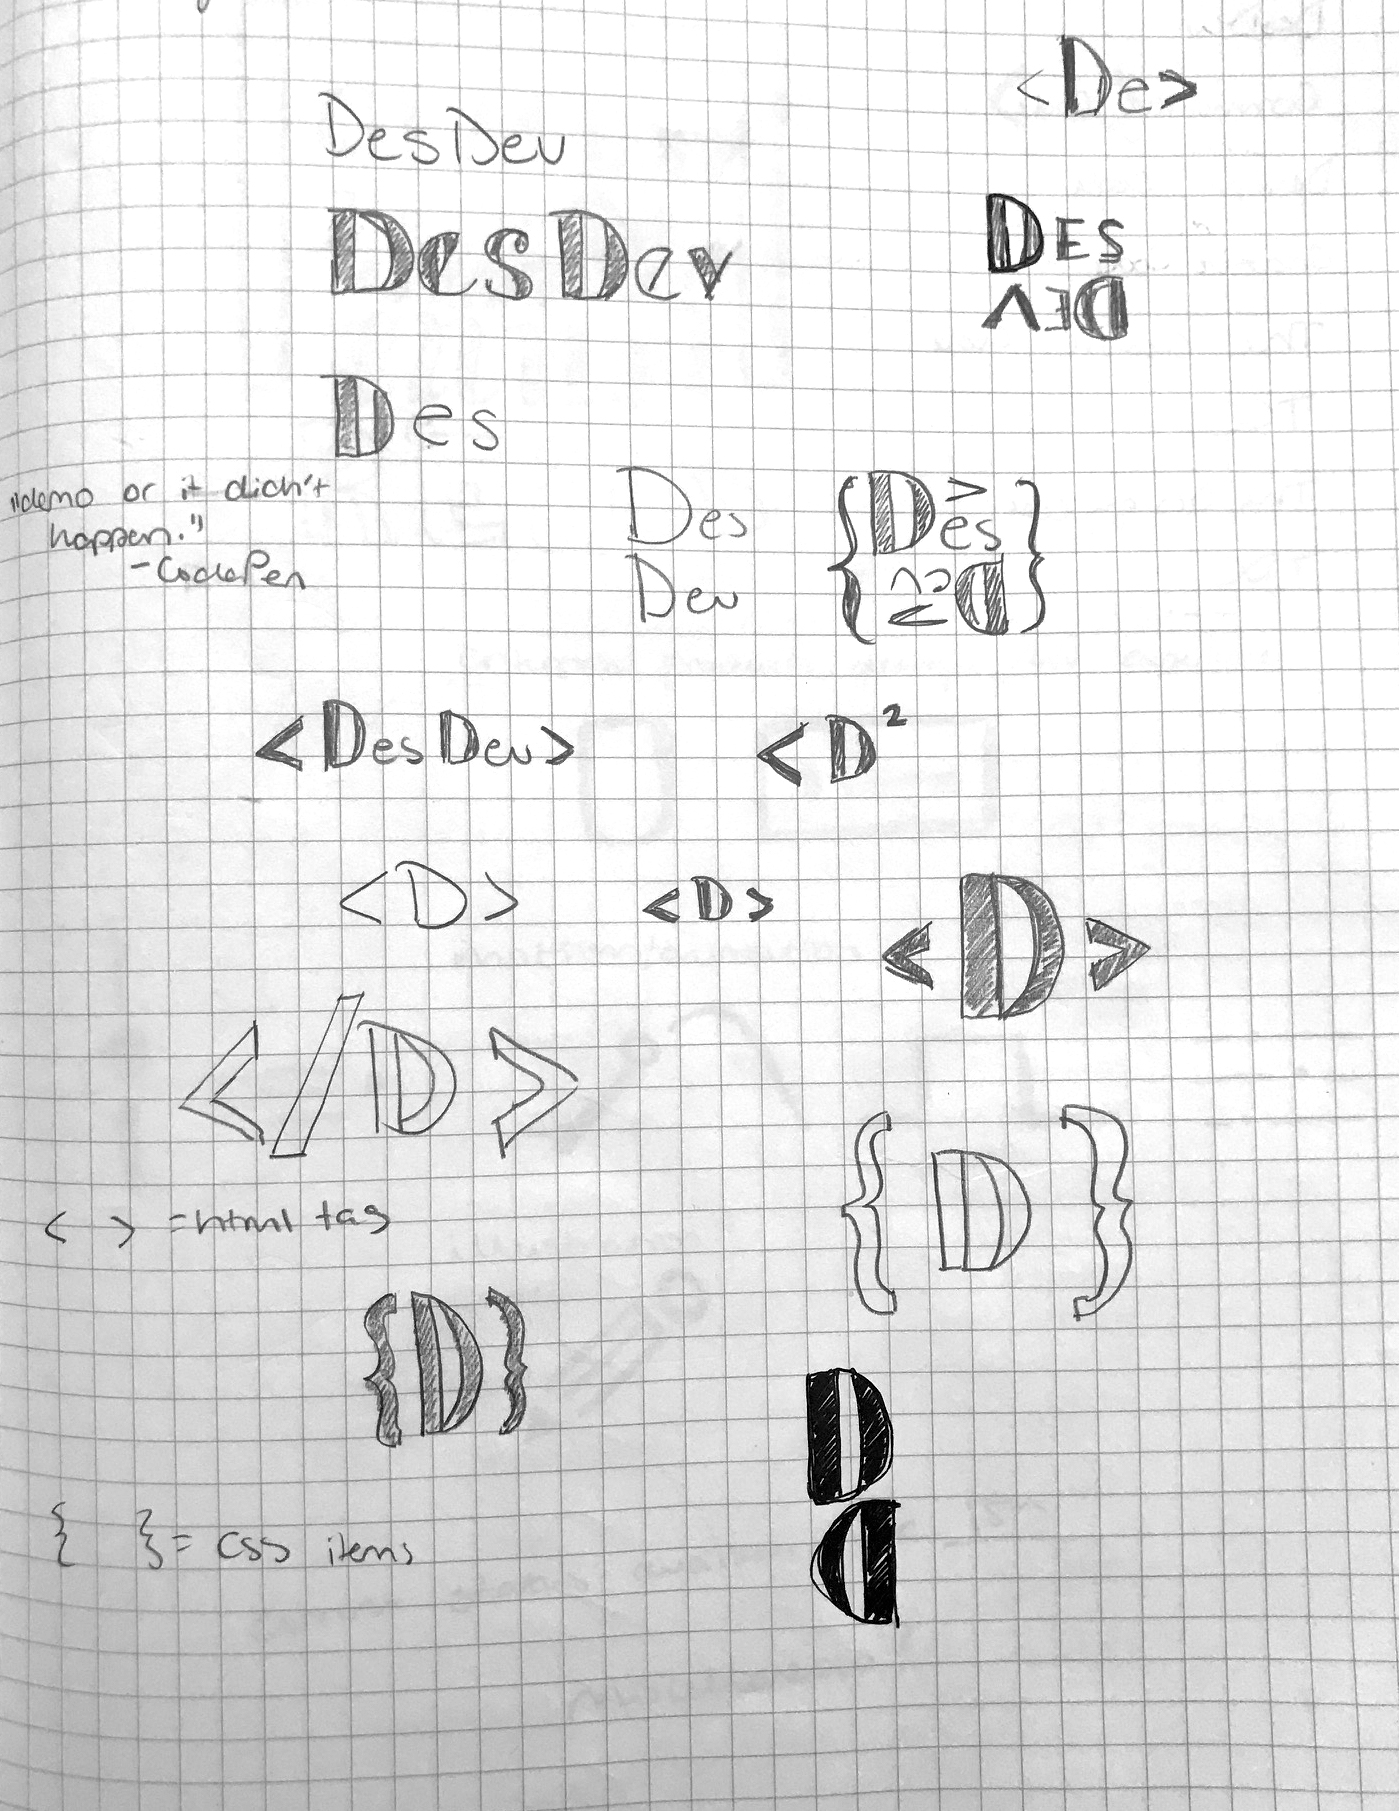 <De>
DesDev
DesDev
DES
DEV
Des
"demo or it didn't
happen."
- CodePen
Des
Dev
{Des >
Dev <}
<DesDev>
<D²
<D>
<D>
<D>
</D>
{D}
< > = html tag
{D}
D
D
{ } = css items